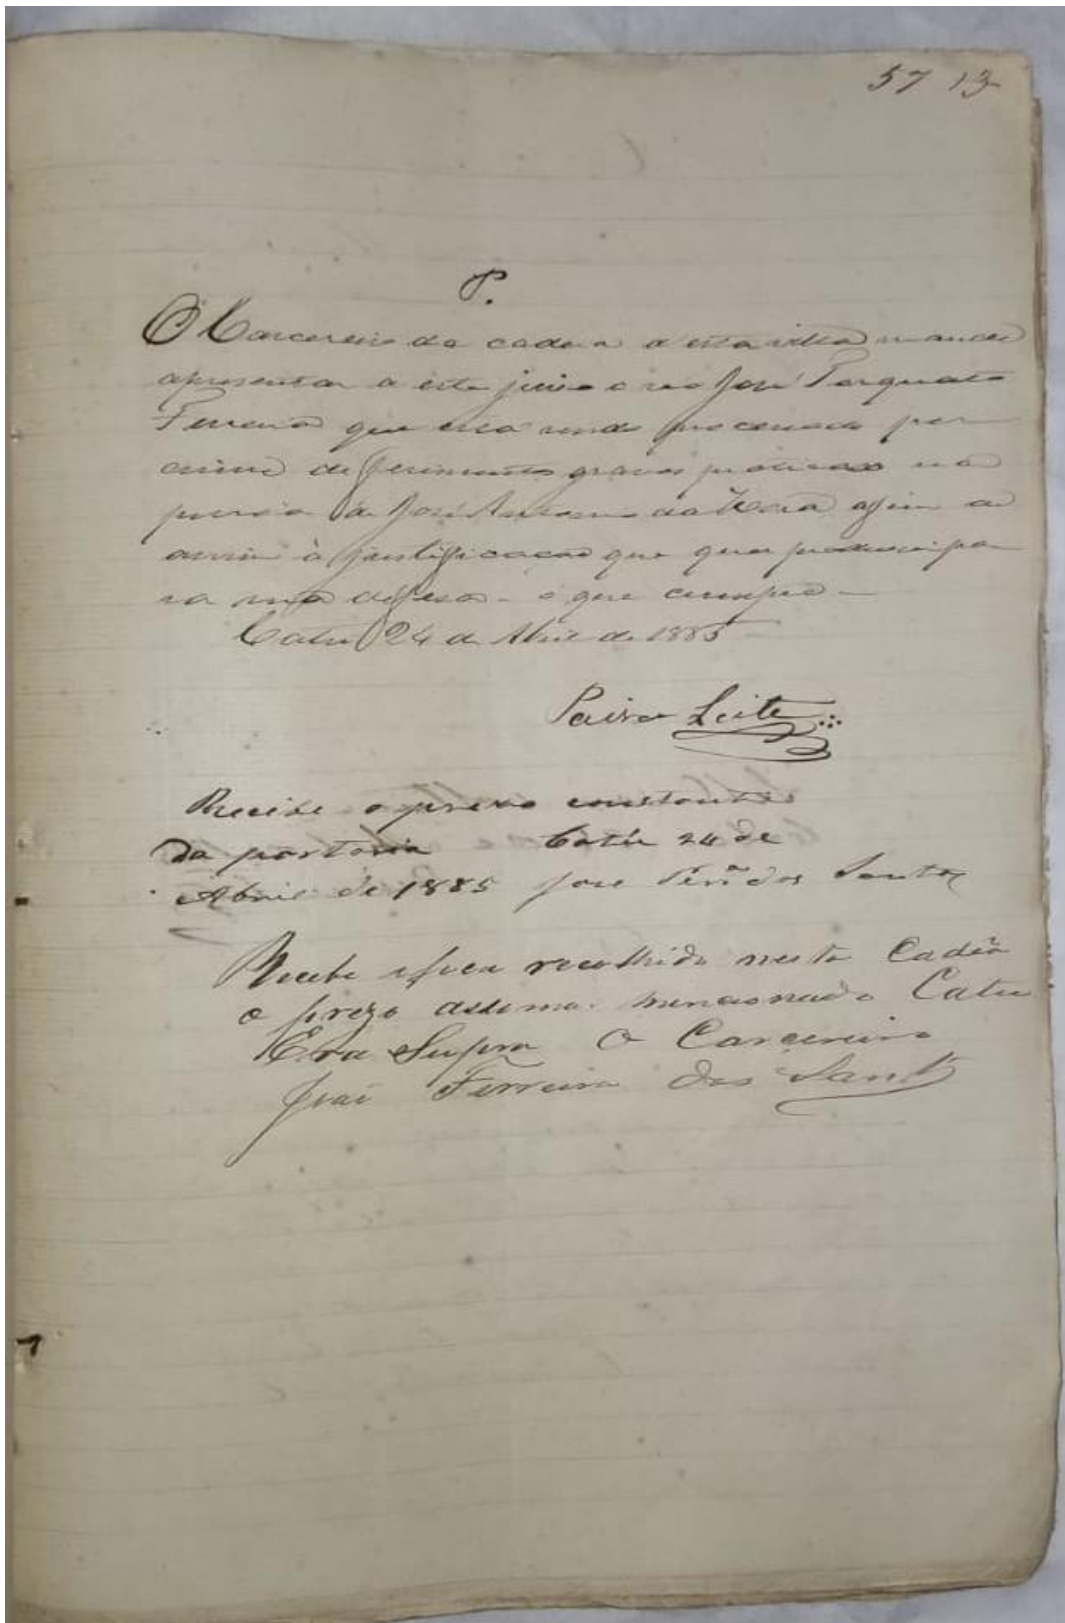 57 13
P.
O Carcereiro da cadea d'esta villa mande
apresentar a este juiso o reo José Torquato
Ferreira que está sendo processado por
crime de ferimentos graves praticado na
pessoa de José Antonio da Hora afim de
assistir à justificação que quer produsir pa
ra sua defesa - o que cumpra -
Catú 24 de Abril de 1885
Paiva Leite
Recibe o prezo constante
da portaria Catú 24 de
Abril de 1885 José Ferrª dos Santos
Recebe e fica recolhido nesta Cadêa
o prezo assima mencionado Catu
Era Supra O Carcereiro
José Ferreira dos Santos